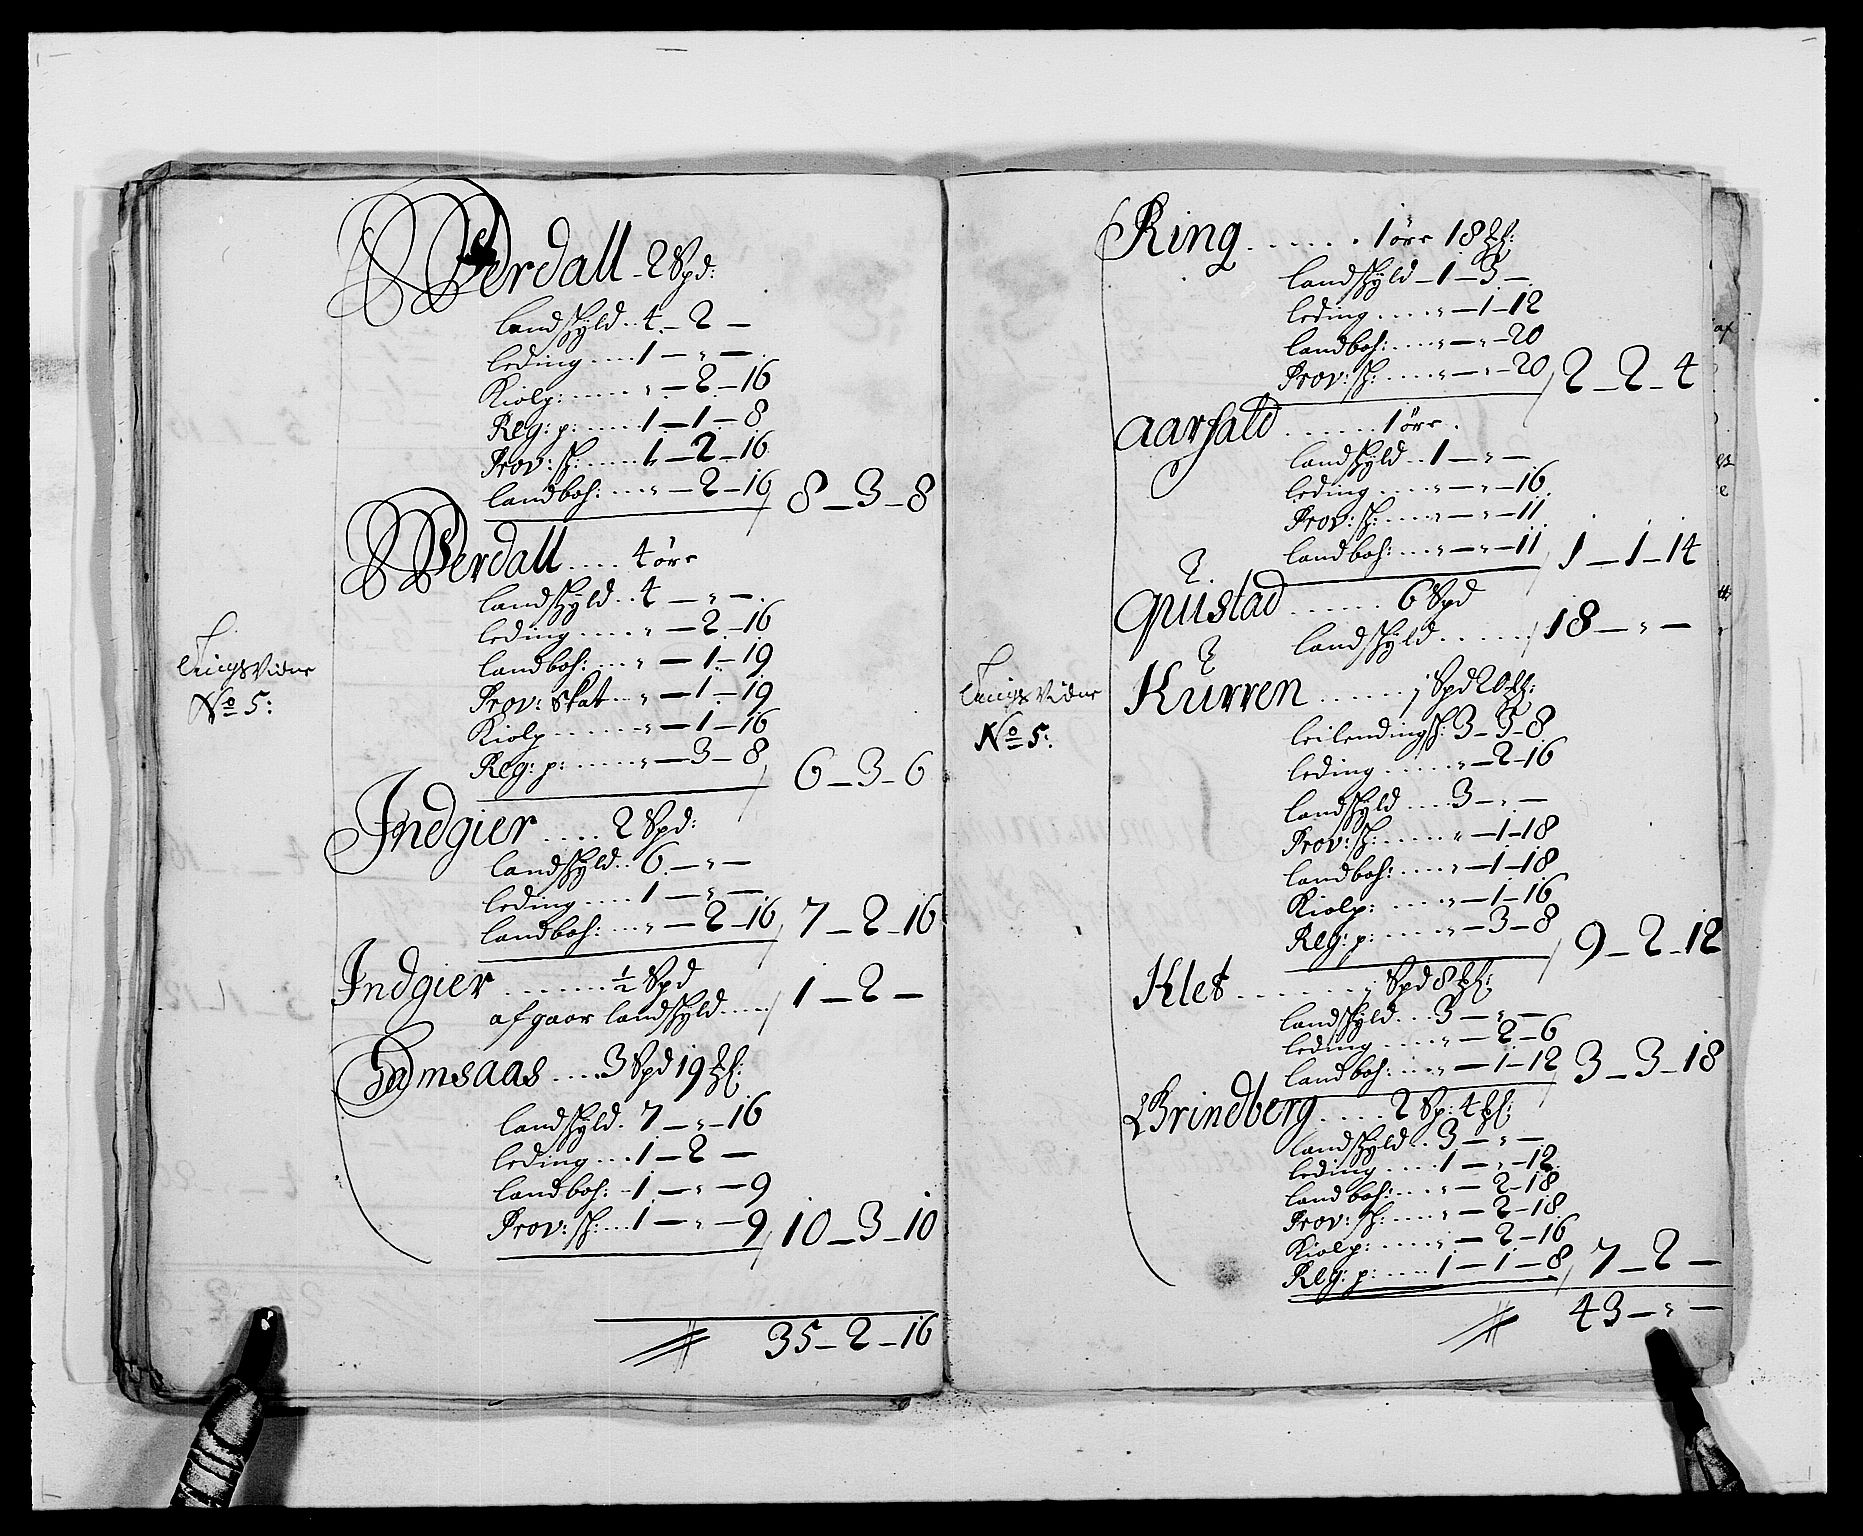 Werdall - 2 Spd:
landskyld .. 4 - 2 -
leding .... 1 - " -
Kiolp: ...... " - 2 - 16
Reg: p: ..... 1 - 1 - 8
Prov: sk: ..... 1 - 2 - 16
landboh: ... " - 2 - 16 / 8 - 3 - 8
Werdall .... 4 öre
landskyld .. 4 - " -
leding ..... " - 2 - 16
landboh: ... " - 1 - 19
Tings Vidne
Prov: skat .. " - 1 - 19
No 5:
Kiolp ...... " - 1 - 16
Reg: p: ..... " - 3 - 8 / 6 - 3 - 6
Indgier .... 2 Spd:
landskyld .. 6 - " -
leding .... 1 - " -
landboh: ... " - 2 - 16 / 7 - 2 - 16
Indgier ....... ½ Spd
afgaar landskyld ..... / 1 - 2 -
Ramsaas .... 3 Spd 19 Mk:
landskyld . 7 - " - 16
leding ... 1 - 2 -
landboh: - 1 - " - 9
Prov: sk: ... 1 - " - 9 / 10 - 3 - 10
35 - 2 - 16
Ring ...... 1 öre 18 Mk:
landskyld - 1 - 3 -
leding ..... " - 1 - 12
landboh: .... " - " - 20
Prov: sk: .... " - " - 20 / 2 - 2 - 4
Aarstad ...... 1 öre .
landskyld .. 1 - " -
leding .... " - " - 16
Prov: sk: .... " - " - 11
landboh: ... " - " - 11 / 1 - 1 - 14
Qvistad ...... 6 Spd
landskyld ..... / 18 - " -
Tings Vidne
No 5:
Kurren ...... j Spd 20 Mk:
leilendingsk: 3 - 3 - 8
leding ..... " - 2 - 16
landskyld ... 3 - " -
Prov: sk: ..... " - 1 - 18
landboh: .... " - 1 - 18
Kiolp: .... " - 1 - 16
Reg: p: .... " - 3 - 8 / 9 - 2 - 12
Klet ....... j Spd 8 Mk:
landskyld .. 3 - " -
leding .... " - 2 - 6
landboh: ... " - 1 - 12 / 3 - 3 - 18
Grindberg .... 2 Sp: 4 Mk:
landskyld . 3 - " -
leding .... 1 - " - 12
landboh: ... " - 2 - 18
Prov: sk: .... " - 2 - 18
Kiolp: .... " - 2 - 16
Reg: p: .... 1 - 1 - 8 / 7 - 2 -
43 - " -